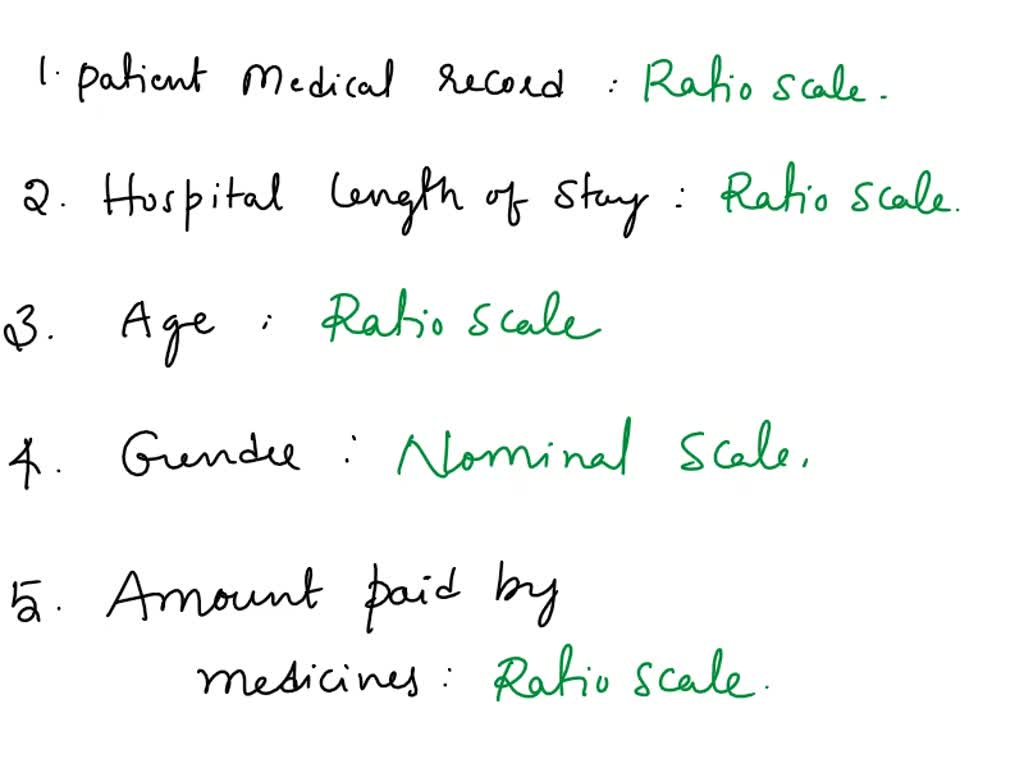 1. Patient Medical record : Ratio scale.
2. Hospital length of stay : Ratio scale.
3. Age : Ratio scale
4. Gender : Nominal scale.
5. Amount paid by
medicines : Ratio scale.